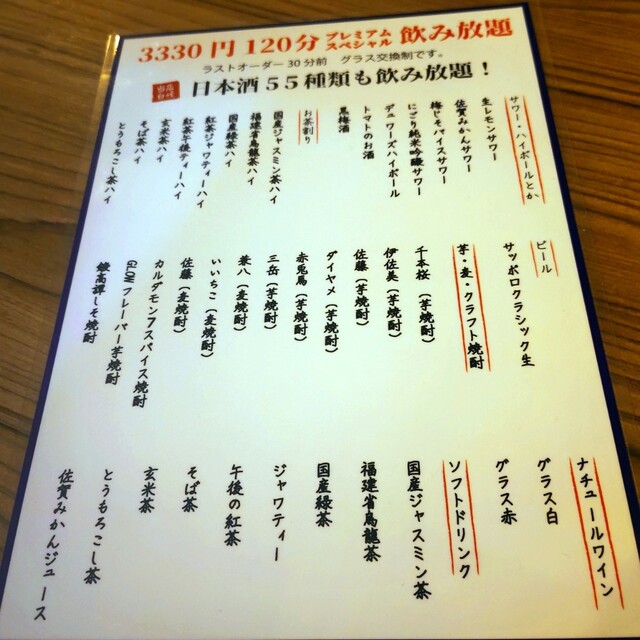 3330円 120分 プレミアムスペシャル 飲み放題
ラストオーダー30分前 グラス交換制です。
日本酒55種類も飲み放題！
サワー・ハイボールとか
生レモンサワー
佐賀みかんサワー
梅じそバイスサワー
にごり純米吟醸サワー
デュワーズハイボール
トマトのお酒
黒梅酒
お茶割り
国産ジャスミン茶ハイ
福建省烏龍茶ハイ
国産緑茶ハイ
紅茶ジャワティーハイ
紅茶午後ティーハイ
玄米茶ハイ
そば茶ハイ
とうもろこし茶ハイ
ビール
サッポロクラシック生
芋・麦・クラフト焼酎
千本桜（芋焼酎）
伊佐美（芋焼酎）
佐藤（芋焼酎）
ダイヤメ（芋焼酎）
赤兎馬（芋焼酎）
三岳（芋焼酎）
兼八（麦焼酎）
いいちこ（麦焼酎）
佐藤（麦焼酎）
カルダモンスパイス焼酎
GLOWフレーバー芋焼酎
鍛高譚しそ焼酎
ナチュールワイン
グラス白
グラス赤
ソフトドリンク
国産ジャスミン茶
福建省烏龍茶
国産緑茶
ジャワティー
午後の紅茶
そば茶
玄米茶
とうもろこし茶
佐賀みかんジュース